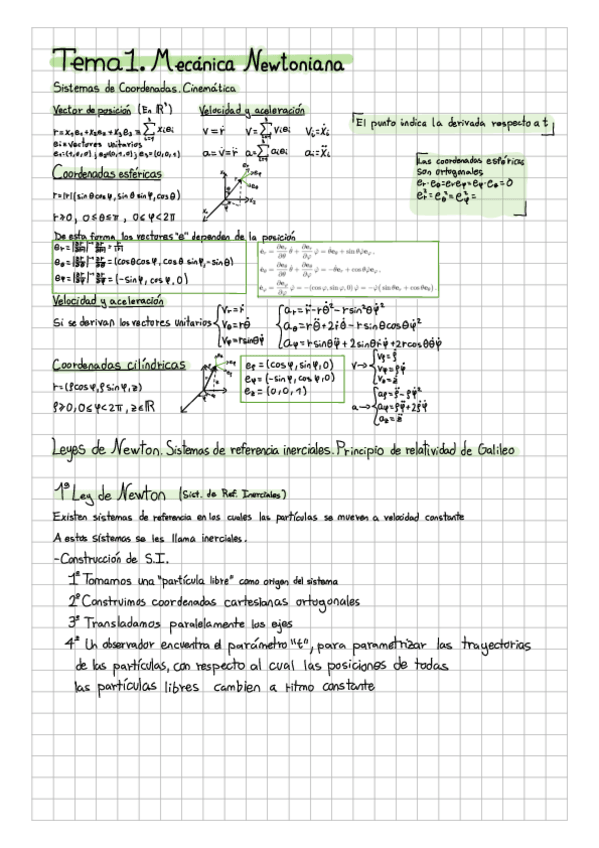 Tema 1. Mecánica Newtoniana
Sistemas de Coordenadas. Cinemática
Vector de posición (En ℝ³)
r = x₁e₁ + x₂e₂ + x₃e₃ = Σ xᵢeᵢ
eᵢ ≡ vectores unitarios
e₁=(1,0,0); e₂=(0,1,0); e₃=(0,0,1)
Velocidad y aceleración
v = ṙ v = Σ vᵢeᵢ vᵢ = ẋᵢ
a = v̇ = r̈ a = Σ aᵢeᵢ aᵢ = ẍᵢ
El punto indica la derivada respecto a t
Coordenadas esféricas
r = |r|(sinθcosφ, sinθsinφ, cosθ)
r≥0, 0≤θ≤π, 0≤φ<2π
Las coordenadas esféricas
son ortogonales
eᵣ·eθ = eᵣ·eφ = eφ·eθ = 0
eᵣ² = eθ² = eφ² =
De esta forma los vectores "e" dependen de la posición
eᵣ = |∂r/∂r|⁻¹ ∂r/∂r = r/|r|
eθ = |∂r/∂θ|⁻¹ ∂r/∂θ = (cosθcosφ, cosθsinφ, -sinθ)
eφ = |∂r/∂φ|⁻¹ ∂r/∂φ = (-sinφ, cosφ, 0)
ėᵣ = ∂eᵣ/∂θ θ̇ + ∂eᵣ/∂φ φ̇ = θ̇eθ + sinθφ̇eφ,
ėθ = ∂eθ/∂θ θ̇ + ∂eθ/∂φ φ̇ = -θ̇eᵣ + cosθφ̇eφ,
ėφ = ∂eφ/∂φ φ̇ = -(cosφ, sinφ, 0)φ̇ = -φ̇(sinθeᵣ + cosθeθ).
Velocidad y aceleración
Si se derivan los vectores unitarios
vᵣ = ṙ
vθ = rθ̇
vφ = r sinθφ̇
aᵣ = r̈ - rθ̇² - r sin²θφ̇²
aθ = rθ̈ + 2ṙθ̇ - r sinθcosθφ̇²
aφ = r sinθφ̈ + 2 sinθṙφ̇ + 2r cosθθ̇φ̇
Coordenadas cilíndricas
r = (ρcosφ, ρsinφ, z)
ρ≥0, 0≤φ<2π, z∈ℝ
eρ = (cosφ, sinφ, 0)
eφ = (-sinφ, cosφ, 0)
e_z = (0, 0, 1)
v→
vρ = ρ̇
vφ = ρφ̇
v_z = ż
a→
aρ = ρ̈ - ρφ̇²
aφ = ρφ̈ + 2ρ̇φ̇
a_z = z̈
Leyes de Newton. Sistemas de referencia inerciales. Principio de relatividad de Galileo
1ª Ley de Newton (Sist. de Ref. Inerciales)
Existen sistemas de referencia en los cuales las partículas se mueven a velocidad constante
A estos sistemas se les llama inerciales.
-Construcción de S.I.
1º Tomamos una "partícula libre" como origen del sistema
2º Construimos coordenadas cartesianas ortogonales
3º Transladamos paralelamente los ejes
4º Un observador encuentra el parámetro "t", para parametrizar las trayectorias
de las partículas, con respecto al cual las posiciones de todas
las partículas libres cambien a ritmo constante